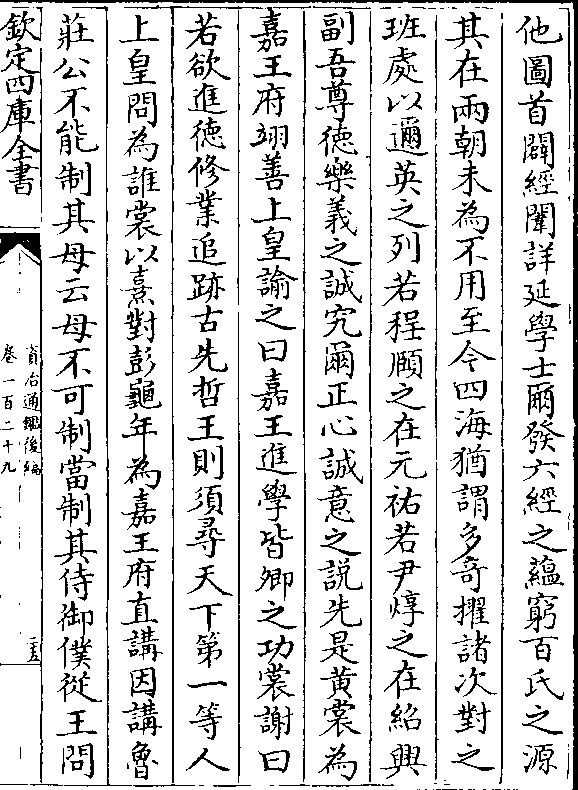 他圖首闢經闈詳延學士爾發六經之蘊窮百氏之源
其在兩朝未為不用至今四海猶謂多竒擢諸次對之
班處以邇英之列若程頤之在元祐若尹焞之在紹興
副吾尊德樂義之誠究爾正心誠意之説先是黄裳為
嘉王府翊善上皇諭之曰嘉王進學皆卿之功裳謝曰
若欲進徳修業追跡古先哲王則須尋天下第一等人
上皇問為誰裳以熹對彭龜年為嘉王府直講因講魯
莊公不能制其母云母不可制當制其侍御僕從王問
欽定四庫全書
資治通鑑後編
卷一百二十九
二十五